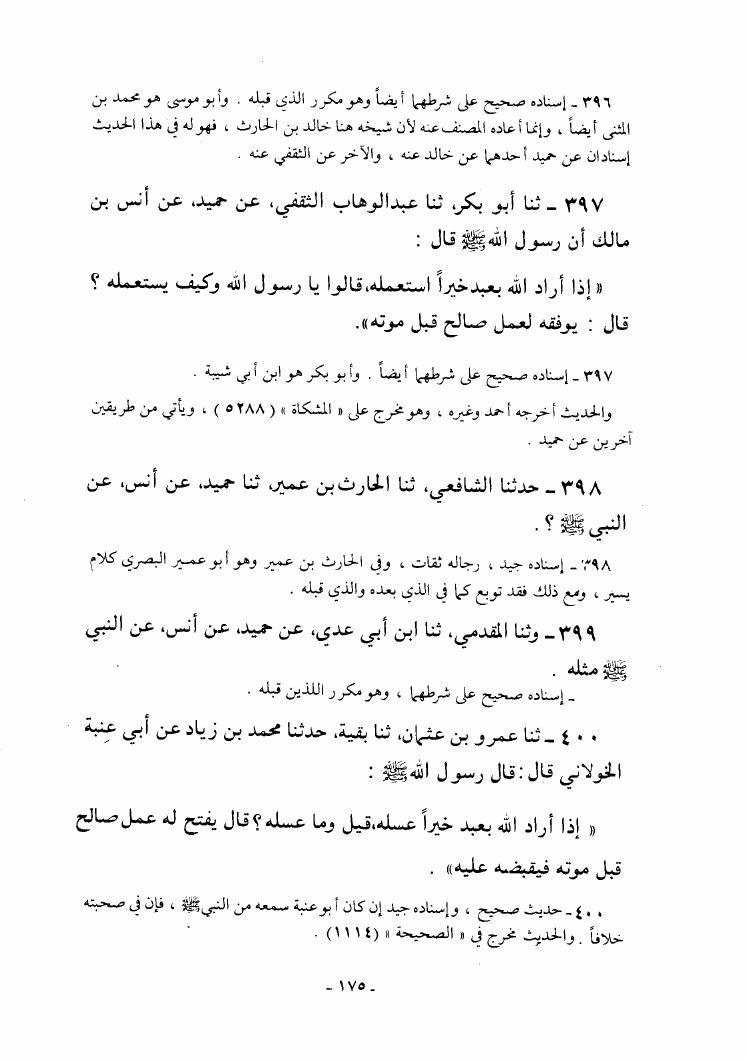 ٣٩٦ ـ إسناده صحيح على شرطهما أيضاً وهو مكرر الذي قبله . وأبو موسى هو محمد بن
المثنى أيضاً ، وإنما أعاده المصنف عنه لأن شيخه هنا خالد بن الحارث ، فهو له في هذا الحديث
إسنادان عن حميد أحدهما عن خالد عنه ، والآخر عن الثقفي عنه .
٣٩٧ ـ ثنا أبو بكر، ثنا عبدالوهاب الثقفي، عن حميد، عن أنس بن
مالك أن رسول الله ﷺ قال :
« إذا أراد الله بعبد خيراً استعمله، قالوا يا رسول الله وكيف يستعمله ؟
قال : يوفقه لعمل صالح قبل موته».
٣٩٧ ـ إسناده صحيح على شرطهما أيضاً . وأبو بكر هو ابن أبي شيبة .
والحديث أخرجه أحمد وغيره ، وهو مخرج على « المشكاة » ( ٥٢٨٨ ) ، ويأتي من طريقين
آخرين عن حميد .
٣٩٨ ـ حدثنا الشافعي، ثنا الحارث بن عمير، ثنا حميد، عن أنس، عن
النبي ﷺ ؟ .
٣٩٨ ـ إسناده جيد ، رجاله ثقات ، وفي الحارث بن عمير وهو أبو عمير البصري كلام
يسير ، ومع ذلك فقد توبع كما في الذي بعده والذي قبله .
٣٩٩ ـ وثنا المقدمي، ثنا ابن أبي عدي، عن حميد، عن أنس، عن النبي
ﷺ مثله .
ـ إسناده صحيح على شرطهما ، وهو مكرر اللذين قبله .
٤٠٠ ـ ثنا عمرو بن عثمان، ثنا بقية، حدثنا محمد بن زياد عن أبي عِنبة
الخولاني قال : قال رسول الله ﷺ :
« إذا أراد الله بعبد خيراً عسله، قيل وما عسله ؟ قال يفتح له عمل صالح
قبل موته فيقبضه عليه» .
٤٠٠ ـ حديث صحيح ، وإسناده جيد إن كان أبو عنبة سمعه من النبي ﷺ ، فإن في صحبته
خلافاً . والحديث مخرج في « الصحيحة » (١١١٤) .
ـ ١٧٥ ـ